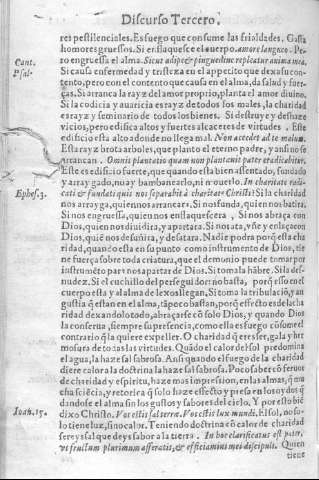 Discurso Tercero.
res pestilenciales. Es fuego que consume las frialdades. Gasta
homores gruessos. Si enflaquesce el cuerpo. amore langueo. Pe-
Cant.
ro engruessa el alma. Sicut adipe & pinguedine repleatur anima mea.
Psal.
Si causa enfermedad y tristeza en el appetito que dexa su con-
tento, pero con el contento que causa en el alma, da salud y fuer-
ças. Si arranca la rayz del amor proprio, planta el amor diuino.
Si la codicia y auaricia es rayz de todos los males, la charidad
es rayz y seminario de todos los bienes. Si destruye y deshaze
vicios, pero edifica altos y fuertes alcaceres de virtudes. Este
edificio esta alto donde no llega mal. Non accedet ad te malum.
Esta rayz brota arboles, que planto el eterno padre, y ansi no se
arrancan. Omnis plantatio quam non plantauit pater eradicabitur.
Este es edificio fuerte, que quando esta bien assentado, fundado
y arraygado, no ay bambanearlo, ni mouerlo. In charitate radi-
Ephes. 3.
cati & fundati quis nos separabit à charitate Christi? Si la charidad
nos arrayga, quien nos arrancara? Si nos funda, quien nos batira?
Si nos engruessa, quien nos enflaquescera? Si nos abraça con
Dios, quien nos diuidira, y apartara? Si nos ata, vñe y enlaça con
Dios, quiē nos desuñira, y desatara? Nadie podra porq̄ esta cha
ridad, quando esta en su punto como instrumento de Dios, tie
ne fuerça sobre toda criatura, que el demonio puede tomar por
instrumēto para nos apartar de Dios. Si toma la hābre. Si la des-
nudez. Si el cuchillo del perseguidor: no basta, porq̄ esso en el
cuerpo esta y al alma de lexos llegan, Si toma la tribulaciō, y an
gustia q̄ estan en el alma, tāpoco bastan, porq̄ effecto es de la cha
ridad dexandolo todo, abraçarse cō solo Dios, y quando Dios
la conserua, siempre su presencia, como ella es fuego cōsume el
contrario q̄ la quiere expeller. O charidad q̄ eres ser, gala y her
mosura de todas las virtudes. Quādo el calor del sol predomina
el agua, la haze sal sabrosa. Ansi quando el fuego de la charidad
diere calor a la doctrina la haze sal sabrosa. Poco saber cō feruor
de charidad y espiritu, haze mas impression, en las almas, q̄ mu
cha sciēcia, y retorica q̄ solo haze effecto y presa en los oydos q̄
dandose el alma sin los gustos y sabores del cielo. Y por esto biē
Ioan. 15.
dixo Christo. Vos estis sal terræ. Vos estis lux mundi. El sol, no so-
lo tiene luz, sino calor. Teniendo doctrina cō calor de charidad
sereys sal que deys sabor a la tierra. In hoc clarificatus est pater,
vt fructum plurimum afferatis, & efficiamini mei discipuli. Quien
tiene